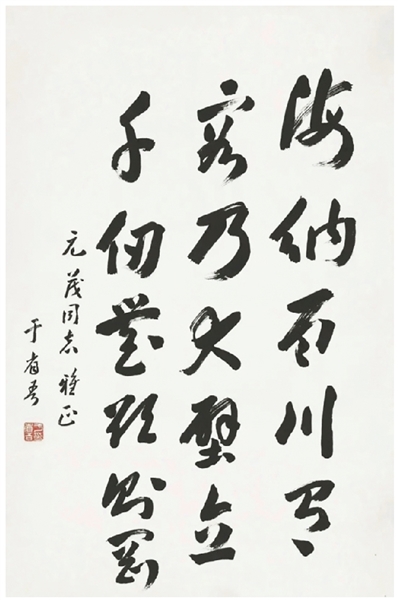 海納百川有
容乃大壁立
千仞無欲則剛
元茂同志雅正
于省吾